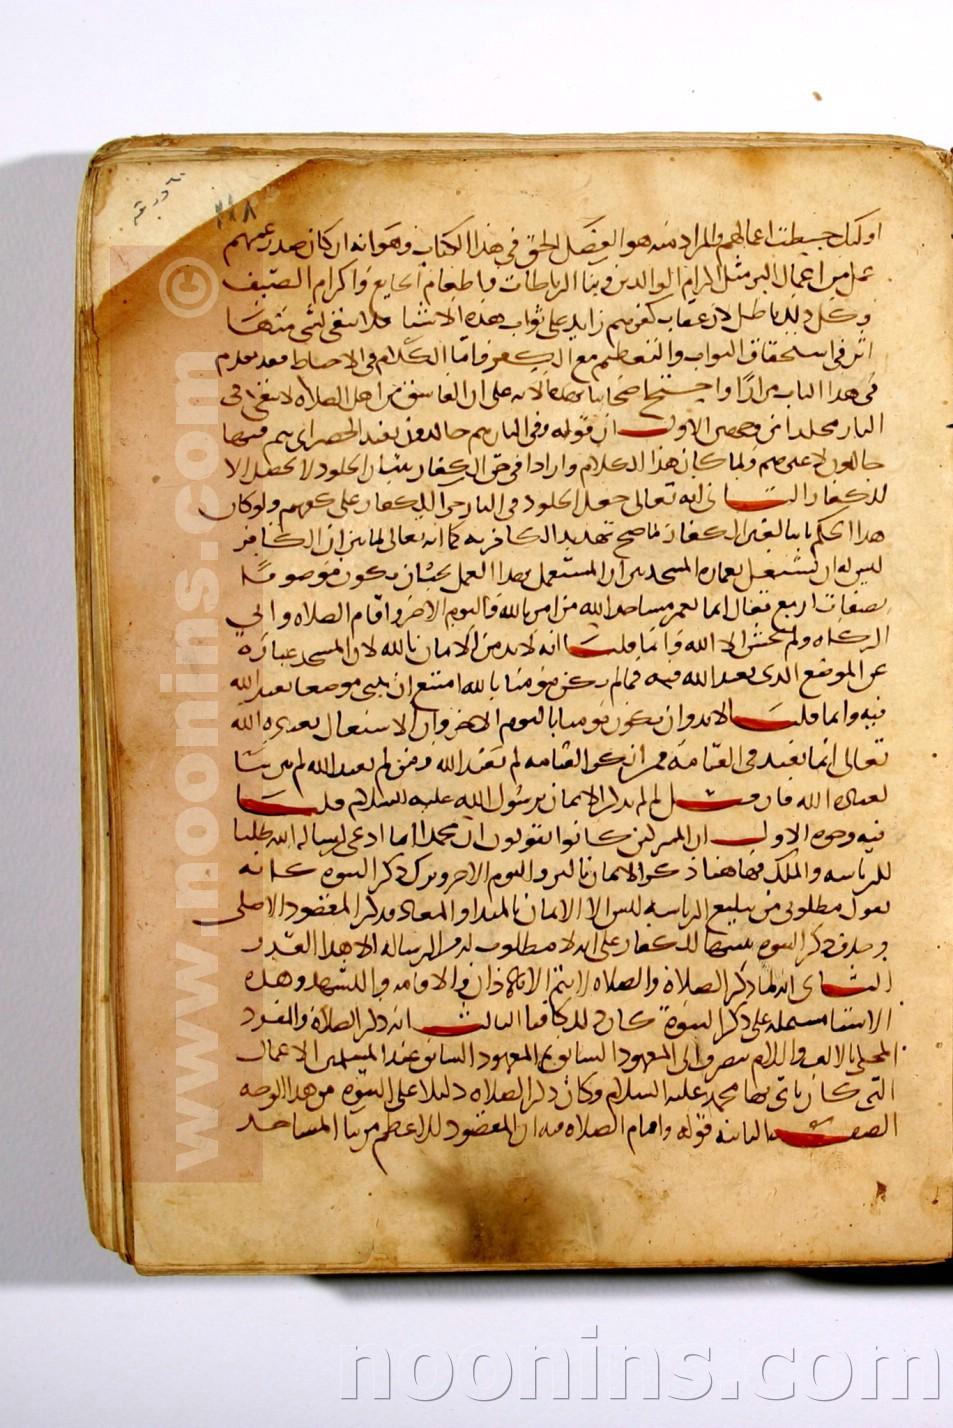 ٢٢٨
اولئك حبطت اعمالهم والمراد منه هو الفصل الحق في هذا الكتاب وهو انه ان كان صدر عنهم
عمل من اعمال البر مثل اكرام الوالدين وبنا الرباطات واطعام الجايع واكرام الضيف
وكل ذلك باطل لان عقاب كفرهم زايد على ثواب هذه الاشيا فلا يبقى لشى منها
اثر في استحقاق الثواب والتعظيم مع الكفر فاما الكلام في الاحباط فقد تقدم
في هذا الباب مرارا واحتج اصحابنا بهذه الاية على ان الفاسق من اهل الصلاة لا يبقى في
النار مخلدا من وجهين الاول ان قوله وفي النار هم خالدون يفيد الحصر اي هم فيها
خالدون لا غيرهم ولما كان هذا الكلام واردا في حق الكفار ثبت ان الخلود لا يحصل الا
للكفار الثاني انه تعالى جعل الخلود في النار جزا للكفار على كفرهم ولو كان
هذا الحكم ثابتا لغير الكفار لما صح تهديد الكافر به كما انه تعالى لما بين ان الكافر
ليس له ان يشتغل بعمارة المسجد بين ان المستعمل بهذا العمل يجب ان يكون موصوفا
بصفات اربع فقال انما يعمر مساجد الله من امن بالله واليوم الاخر واقام الصلاة واتى
الزكاة ولم يخش الا الله وانما قلنا انه لا بد من الايمان بالله لان المسجد عبارة
عن الموضع الذي يعبد الله فيه فمالم يكن مؤمنا بالله امتنع ان يبنى موضعا يعبد الله
فيه وانما قلنا لا بد وان يكون مؤمنا باليوم الاخر لان الاشتغال بعبادة الله
تعالى انما تفيد في القيامة فمن انكر القيامة لم يعبد الله ومن لم يعبد الله لم يبن بنا
لعبادة الله فان قيل لم لم يذكر الايمان برسول الله عليه السلام قلنا
فيه وجوه الاول ان المشركين كانوا يقولون ان محمدا انما ادعى رسالة الله طلبا
للرياسة والملك فهاهنا ذكر الايمان بالله واليوم الاخر وترك ذكر النبوة كانه
يقول مطلوبي من تبليغ الرسالة ليس الا الايمان بالمبدا والمعاد فذكر المقصود الاصلي
وحذف ذكر النبوة تنبيها للكفار على انه لا مطلوب له من الرسالة الا هذا القدر
الثاني انه لما ذكر الصلاة والصلاة لا تتم الا بالاذان والاقامة والتشهد وهذه
الاشيا مشتملة على ذكر النبوة كان ذلك كافيا الثالث انه ذكر الصلاة والمفرد
المحلى بالالف واللام ينصرف الى المعهود السابق ثم المعهود السابق عند المسلمين الاعمال
التي كان ياتي بها محمد عليه السلام وكان ذكر الصلاة دليلا على النبوة من هذا الوجه
الصفة الثانية قوله واقام الصلاة فيه ان المقصود الاعظم من بنا المساجد
www.noonins.com ©
noonins.com